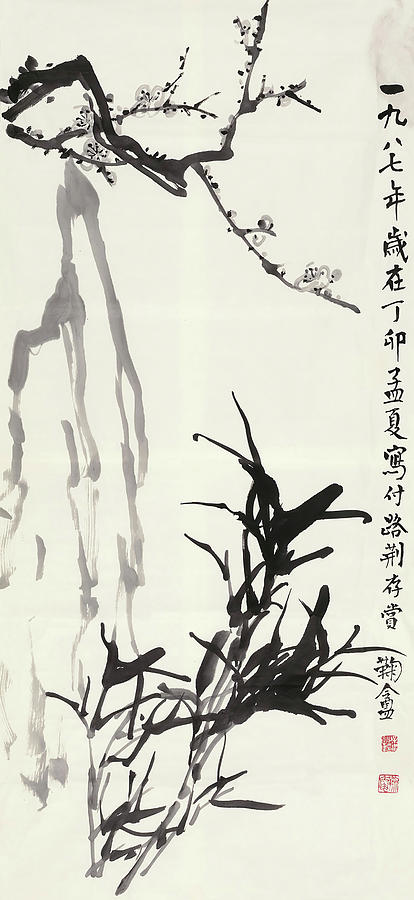 一九八七年歲在丁卯孟夏寫付路荆存賞